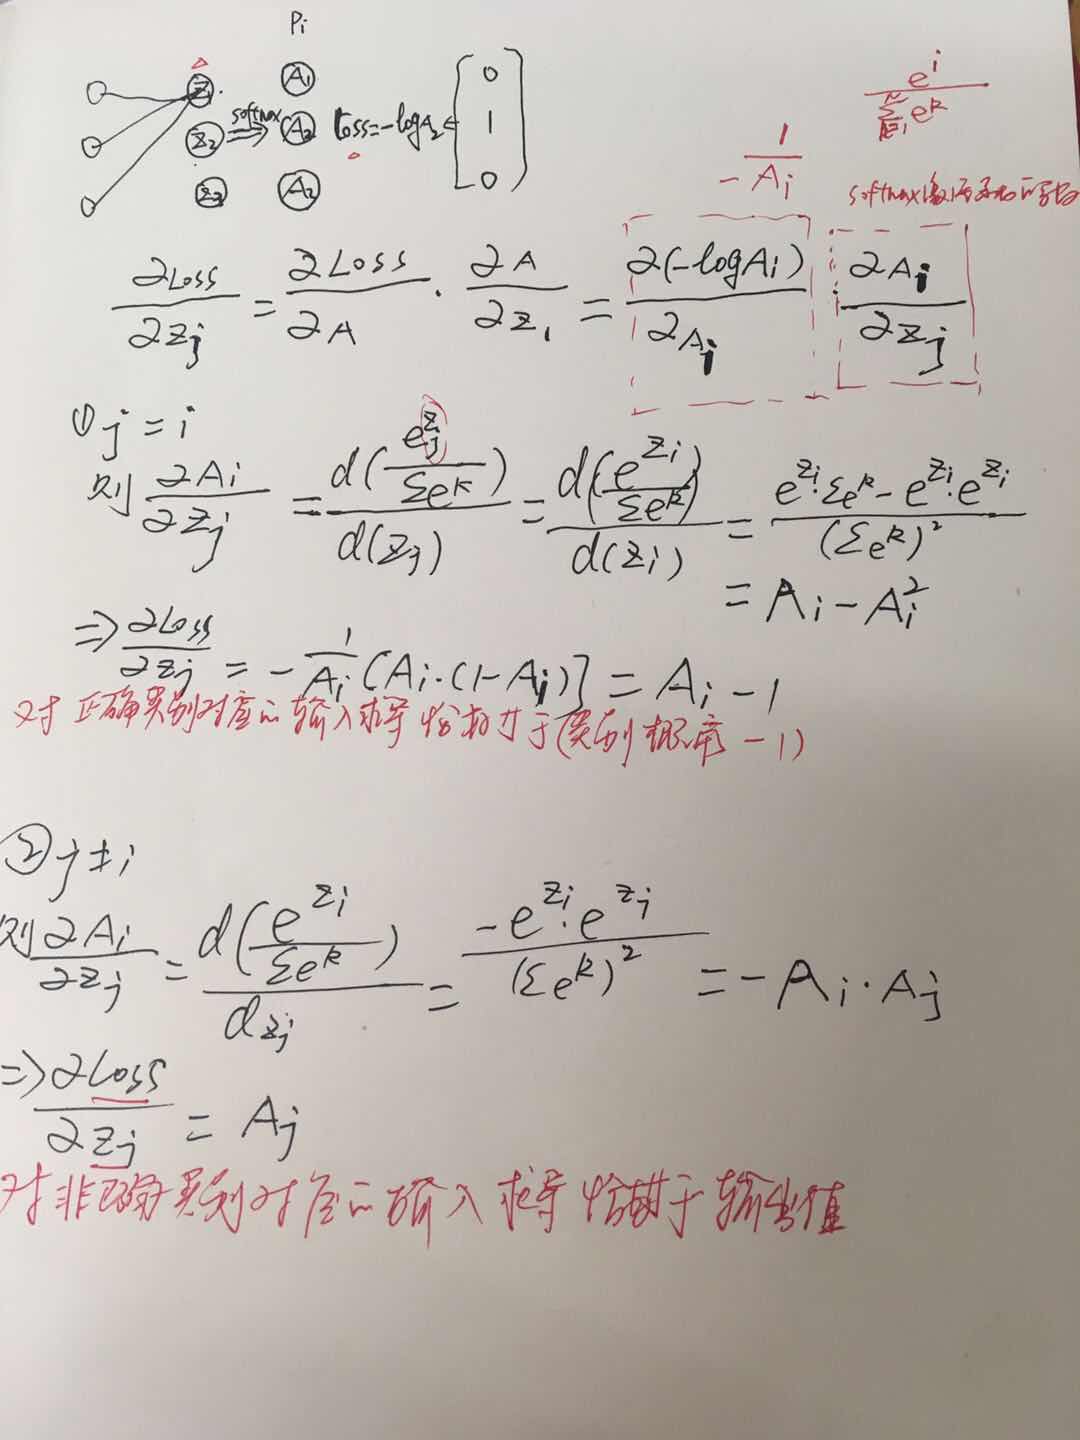 Pi
Z1 A1 0
Z2 softmax ⇒ A2 Loss=-logA2 ← 1
Z3 A3 0
e^i / Σ_{k=1}^N e^k
-1/Ai
softmax
∂Loss/∂Zj = ∂Loss/∂A · ∂A/∂Z1 = ∂(-logAi)/∂Ai ∂Ai/∂Zj
① j = i
则 ∂Ai/∂Zj = d(e^Zj/Σe^k)/d(Zj) = d(e^Zi/Σe^k)/d(Zi) = (e^Zi·Σe^k - e^Zi·e^Zi)/(Σe^k)^2
= Ai - Ai^2
=> ∂Loss/∂Zj = -1/Ai [Ai·(1-Ai)] = Ai - 1
对正确类别对应的输入求导恰好等于(类别概率-1)
② j≠i
则 ∂Ai/∂Zj = d(e^Zi/Σe^k)/dZj = -e^Zi·e^Zj/(Σe^k)^2 = -Ai·Aj
=> ∂Loss/∂Zj = Aj
对非正确类别对应的输入求导恰好等于输出值